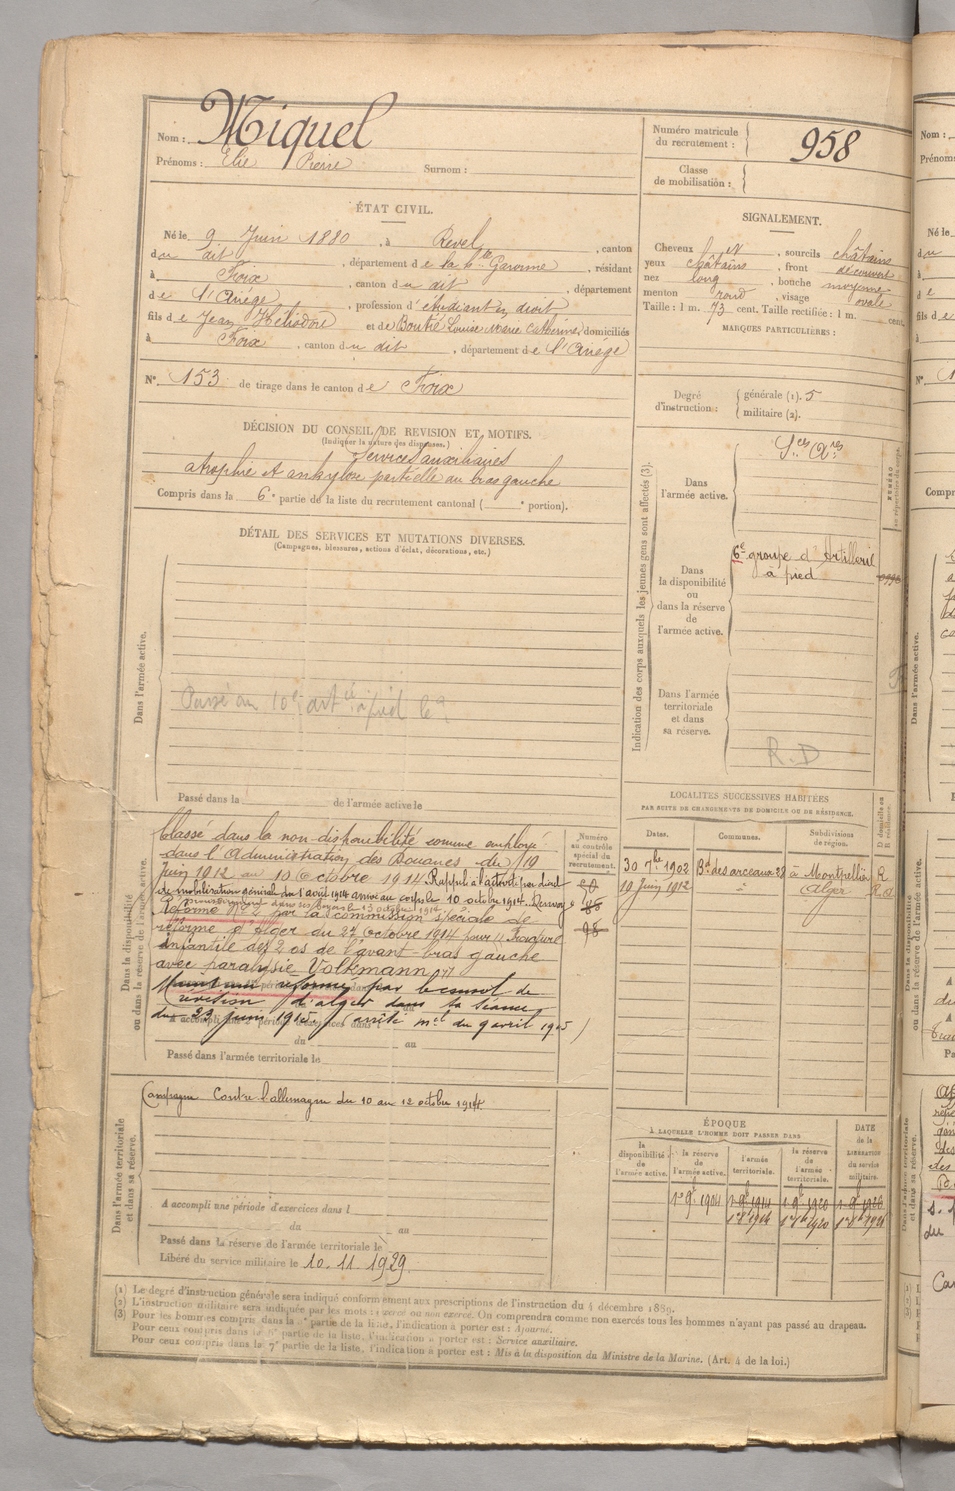 Nom : Miquel
Prénoms : Elie Pierre Surnom :
Numéro matricule du recrutement : 958
Classe de mobilisation :
ÉTAT CIVIL.
Né le 9 Juin 1880, à Revel, canton
du dit, département de la Hte Garonne, résidant
à Foix, canton du dit, département
de l'Ariége, profession d'étudiant en droit
fils de Jean Héliodore et de Boutié Louise Marie Catherine, domiciliés
à Foix, canton du dit, département de l'Ariége
N° 153 de tirage dans le canton de Foix
SIGNALEMENT.
Cheveux et, sourcils châtains
yeux châtains, front découvert
nez long, bouche moyenne
menton rond, visage ovale
Taille : 1 m. 73 cent. Taille rectifiée : 1 m. cent.
MARQUES PARTICULIÈRES :
Degré d'instruction : générale (1). 5
militaire (2).
DÉCISION DU CONSEIL DE REVISION ET MOTIFS.
(Indiquer la nature des dispenses.)
Services auxiliaires
atrophie et ankylose partielle au bras gauche
Compris dans la 6e partie de la liste du recrutement cantonal ( e portion).
DÉTAIL DES SERVICES ET MUTATIONS DIVERSES.
(Campagnes, blessures, actions d'éclat, décorations, etc.)
Dans l'armée active.
Passé au 10e artie à pied
Passé dans la de l'armée active le
Indication des corps auxquels les jeunes gens sont affectés (3).
Dans l'armée active.
Sces Xres
Dans la disponibilité ou dans la réserve de l'armée active.
6e groupe d'Artillerie
à pied
Dans l'armée territoriale et dans sa réserve.
R.D
Dans la disponibilité ou dans la réserve de l'armée active.
Classé dans la non-disponibilité comme employé
dans l'Administration des Douanes du 19
Juin 1912 au 10 Octobre 1914. Rappelé à l'activité par décret
de mobilisation générale du 1 août 1914 arrivé au corps le 10 octobre 1914. Renvoyé
dans ses foyers le 13 octobre 1914
Réformé N° 2 par la commission spéciale de
réforme d'Alger du 27 Octobre 1914 pour "Fracture
infantile des 2 os de l'avant-bras gauche
avec paralysie Volkmann"
Maintenu réformé par le conseil de
révision d'alger dans sa séance
du 23 juin 1915, (arrêté mel du 9 avril 1915)
A accompli une 2e période d'exercices dans l
du au
Passé dans l'armée territoriale le
Numéro au contrôle spécial du recrutement.
LOCALITÉS SUCCESSIVES HABITÉES
PAR SUITE DE CHANGEMENTS DE DOMICILE OU DE RÉSIDENCE.
Dates. Communes. Subdivisions de région. D domicile ou R résidence.
30 7bre 1902 Bd des arceaux 28 à Montpellier R
19 Juin 1912 " Alger R
Dans l'armée territoriale et dans sa réserve.
Campagne Contre l'allemagne du 10 au 12 octobre 1914.
A accompli une période d'exercices dans l
du au
Passé dans la réserve de l'armée territoriale le
Libéré du service militaire le 10.11.1929
ÉPOQUE
À LAQUELLE L'HOMME DOIT PASSER DANS
la disponibilité de l'armée active. la réserve de l'armée active. l'armée territoriale. la réserve de l'armée territoriale.
DATE de la LIBÉRATION du service militaire.
(1) Le degré d'instruction générale sera indiqué conformément aux prescriptions de l'instruction du 4 décembre 1889.
(2) L'instruction militaire sera indiquée par les mots : exercé ou non exercé. On comprendra comme non exercés tous les hommes n'ayant pas passé au drapeau.
(3) Pour les hommes compris dans la partie de la liste, l'indication à porter est : Ajourné.
Pour ceux compris dans la 6e partie de la liste, l'indication à porter est : Service auxiliaire.
Pour ceux compris dans la 7e partie de la liste, l'indication à porter est : Mis à la disposition du Ministre de la Marine. (Art. 4 de la loi.)